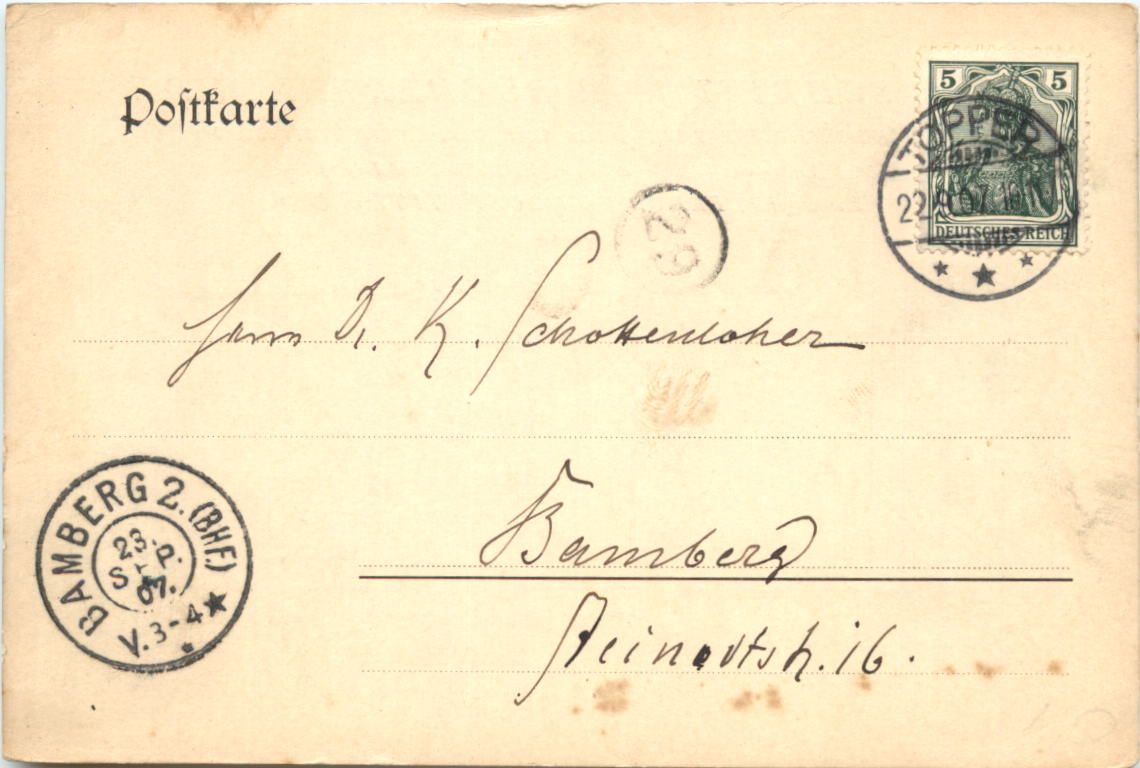 Postkarte
5 5
DEUTSCHES REICH
TOPPER
22. 07. 10
29
Herrn Dr. K. Schottenloher
Bamberg
16.
BAMBERG 2. (BHF.)
23. SEP. 07.
V. 3-4